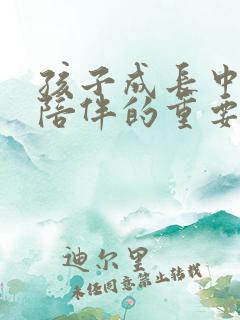 孩子成长中
陪伴的重要
迪尔里
未经同意禁止转载